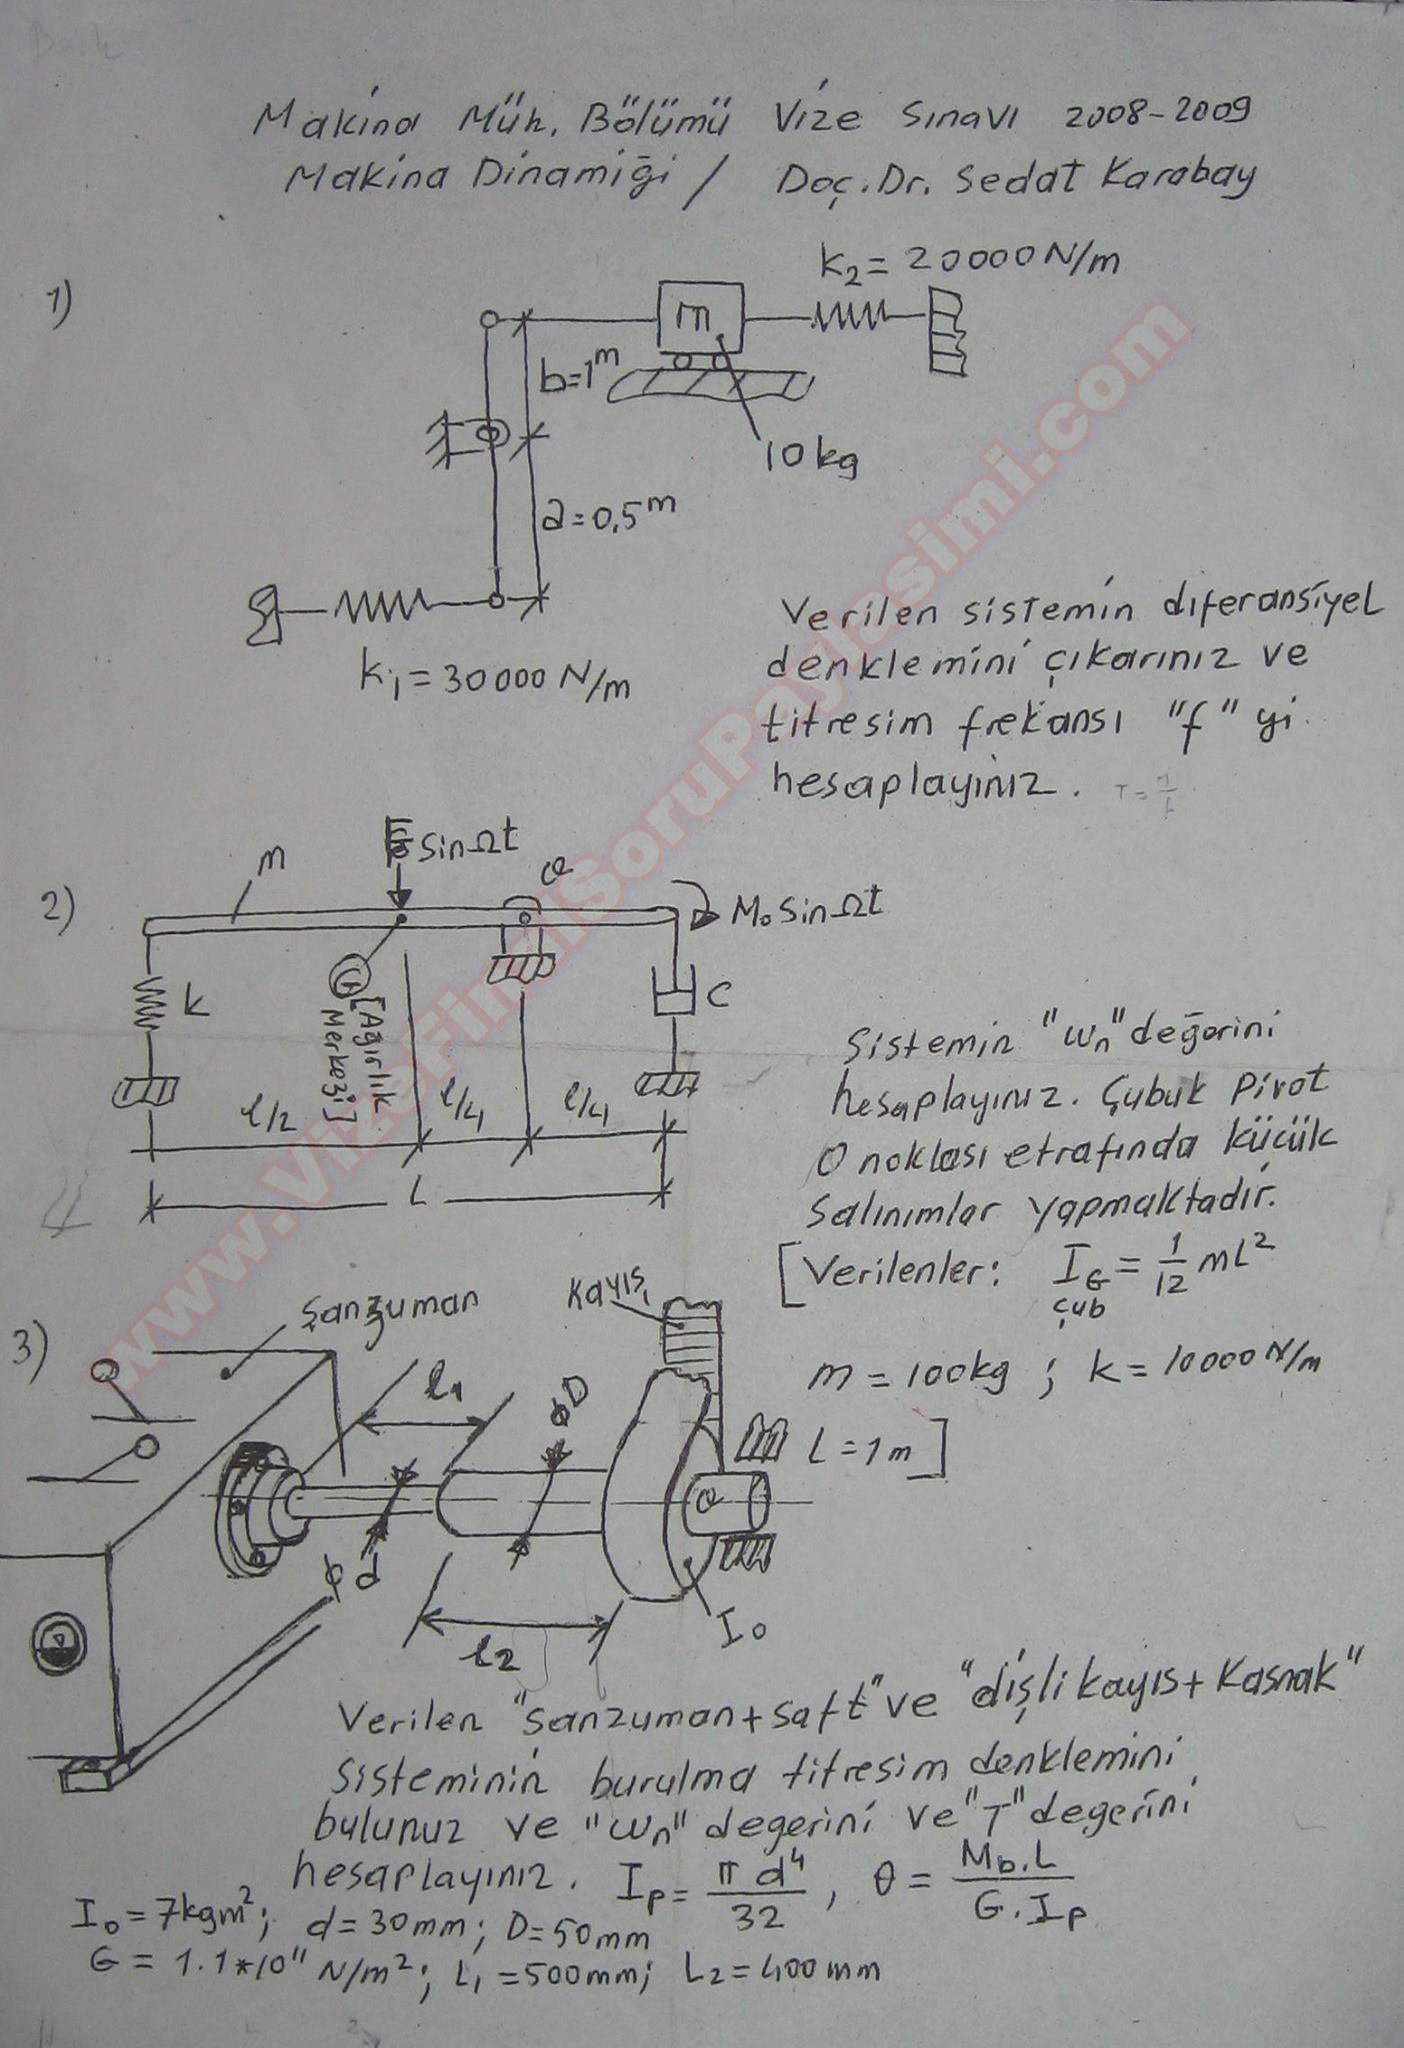 Makina Müh. Bölümü Vize Sınavı 2008-2009
Makina Dinamiği / Doç. Dr. Sedat Karabay
1)
k2 = 20000 N/m
m
b=1m
10kg
a=0,5m
k1 = 30000 N/m
Verilen sistemin diferansiyel
denklemini çıkarınız ve
titresim frekansı "f" yi
hesaplayınız.
www.VizeFinalSoruPaylasimi.com
2)
m
Sin Ωt
O
M0 Sin Ωt
k
G
[Ağırlık
Merkezi]
c
l/2
l/4
l/4
L
Sistemin "ωn" değerini
hesaplayınız. Çubuk Pivot
O noktası etrafında küçük
salınımlar yapmaktadır.
[Verilenler: IG = 1/12 mL²
çub
m = 100kg ; k = 10000 N/m
L = 1m]
3)
Şanzuman
Kayış
l1
ØD
O
Ød
l2
I0
Verilen "şanzuman+saft" ve "dişli kayıs+Kasnak"
sisteminin burulma titresim denklemini
bulunuz ve "ωn" degerini ve "T" degerini
hesaplayınız. Ip = π d⁴/32 , θ = Mb.L/G.Ip
I0 = 7kgm²; d = 30mm; D=50mm
G = 1.1*10¹¹ N/m²; L1 = 500mm; L2 = 400mm